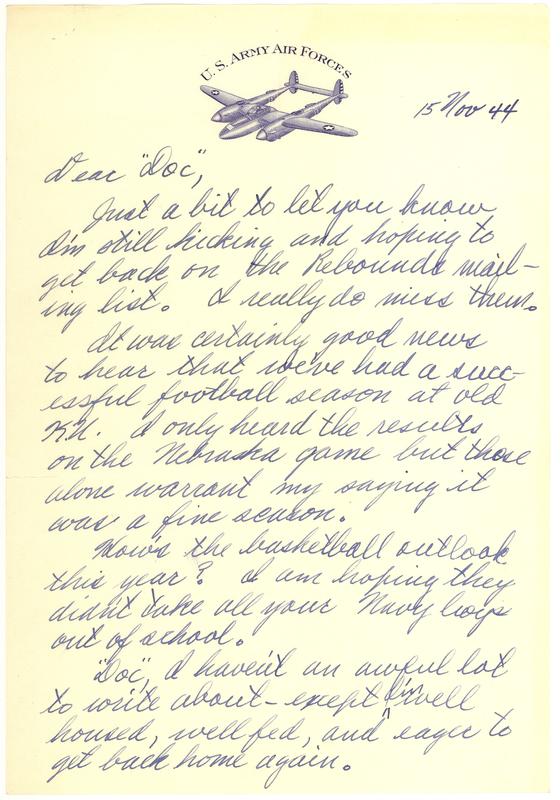 U. S. ARMY AIR FORCES
15 Nov 44
Dear "Doc",
Just a bit to let you know
I'm still kicking and hoping to
get back on the Rebounds mail-
ing list. I really do miss them.
It was certainly good news
to hear that we've had a succ-
essful football season at old
K.U. I only heard the results
on the Nebraska game but those
alone warrant my saying it
was a fine season.
How's the basketball outlook
this year? I am hoping they
didn't take all your Navy boys
out of school.
"Doc", I haven't an awful lot
to write about - except I'm well
housed, well fed, and eager to
get back home again.